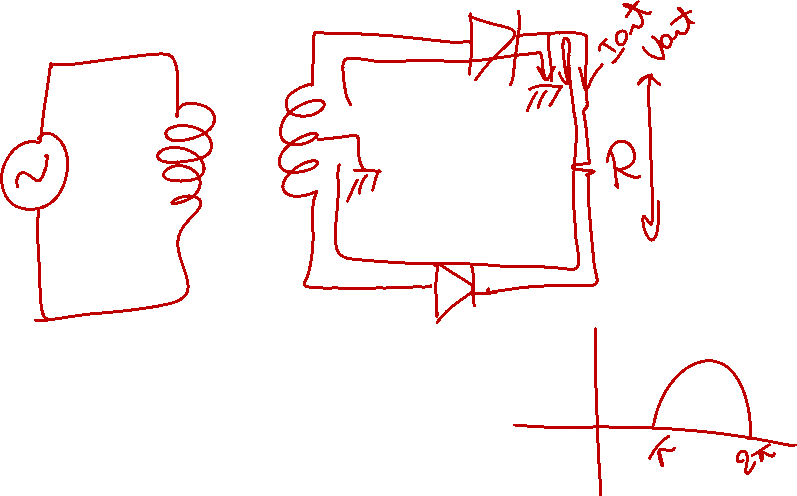 Iout
Vout
R
π
2π